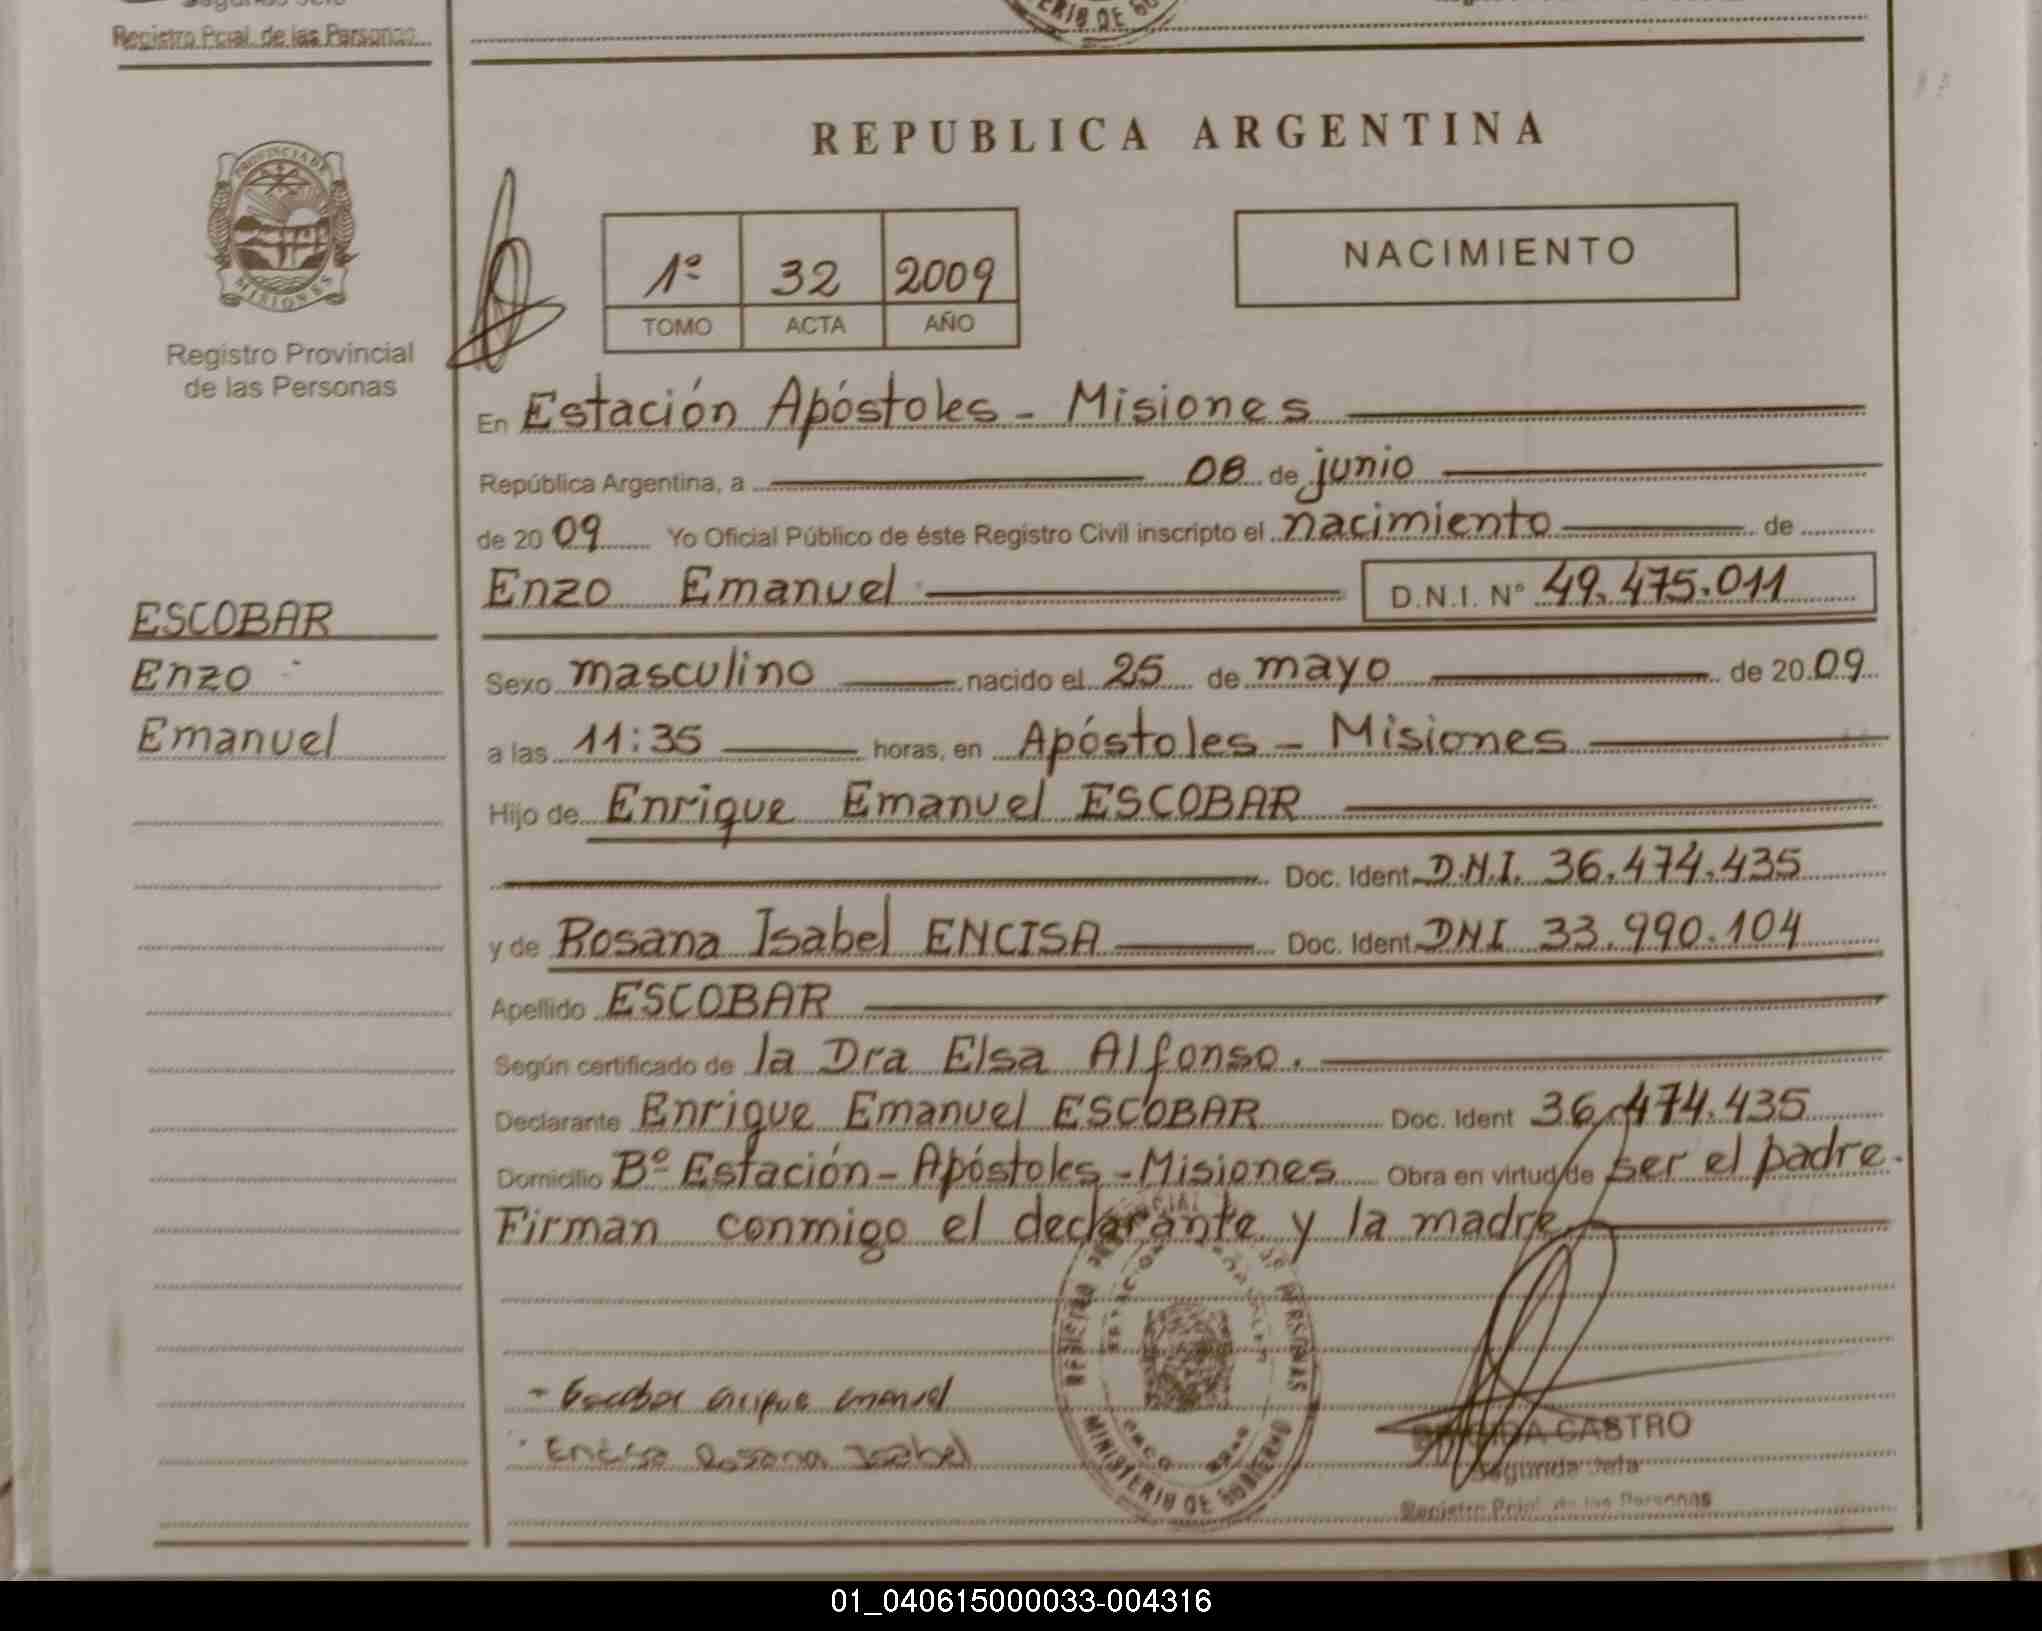 Registro Pcial. de las Personas
MINISTERIO DE GO
REPUBLICA ARGENTINA
PROVINCIA DE
MISIONES
Registro Provincial
de las Personas
1º 32 2009
TOMO ACTA AÑO
NACIMIENTO
En Estación Apóstoles - Misiones
República Argentina, a 08 de junio
de 2009 Yo Oficial Público de éste Registro Civil inscripto el nacimiento de
Enzo Emanuel D.N.I. Nº 49.475.011
ESCOBAR
Enzo
Emanuel
Sexo masculino nacido el 25 de mayo de 2009
a las 11:35 horas, en Apóstoles - Misiones
Hijo de Enrique Emanuel ESCOBAR
Doc. Ident. D.N.I. 36.474.435
y de Rosana Isabel ENCISA Doc. Ident. DNI 33.990.104
Apellido ESCOBAR
Según certificado de la Dra Elsa Alfonso.
Declarante Enrique Emanuel ESCOBAR Doc. Ident 36.474.435
Domicilio Bº Estación - Apóstoles - Misiones Obra en virtud de ser el padre.
Firman conmigo el declarante y la madre
- Escobar enrique emanuel
Encisa Rosana Isabel
REGISTRO DE PERSONAS
MINISTERIO DE GOBIERNO
CASTRO
Segunda Jefa
Registro Pcial. de las Personas
01_040615000033-004316